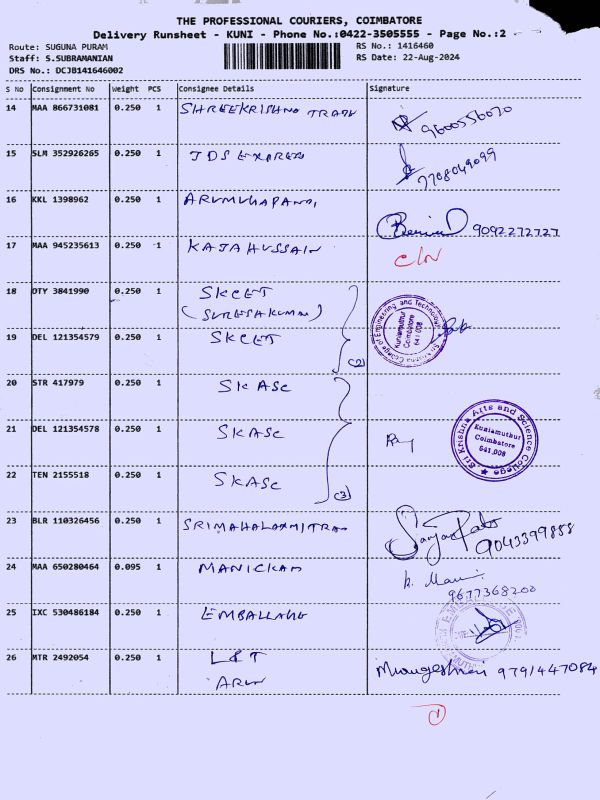 THE PROFESSIONAL COURIERS, COIMBATORE
Delivery Runsheet - KUNI - Phone No.:0422-3505555 - Page No.:2
Route: SUGUNA PURAM
RS No.: 1416460
Staff: S.SUBRAMANIAN
RS Date: 22-Aug-2024
DRS No.: DCJB141646002
S No Consignment No Weight PCS Consignee Details Signature
14 MAA 866731081 0.250 1 SHREEKRISHNA TRADE
9600556020
15 SLM 352926265 0.250 1 JDS EXPRESS
7708049099
16 KKL 1398962 0.250 1 ARUMUHAPANDI
9092272727
17 MAA 945235613 0.250 1 KAJAHUSSAIN
C/N
18 DTY 3841990 0.250 1 SKCET
(SURESHKUMAR)
19 DEL 121354579 0.250 1 SKCET
(2)
Sri Krishna College of Engineering and Technology
Kuniamuthur
Coimbatore
641 008
20 STR 417979 0.250 1 SKASC
21 DEL 121354578 0.250 1 SKASC
Sri Krishna Arts and Science College
Kuniamuthur
Coimbatore
641 008
22 TEN 2155518 0.250 1 SKASC
(3)
23 BLR 110326456 0.250 1 SRIMAHALAXMITRA
9043399888
24 MAA 650280464 0.095 1 MANICKAM
K. Mani
9677368200
25 IXC 530486184 0.250 1 EMBALLAGE
26 MTR 2492054 0.250 1 L&T
ARUN
9791447084
1